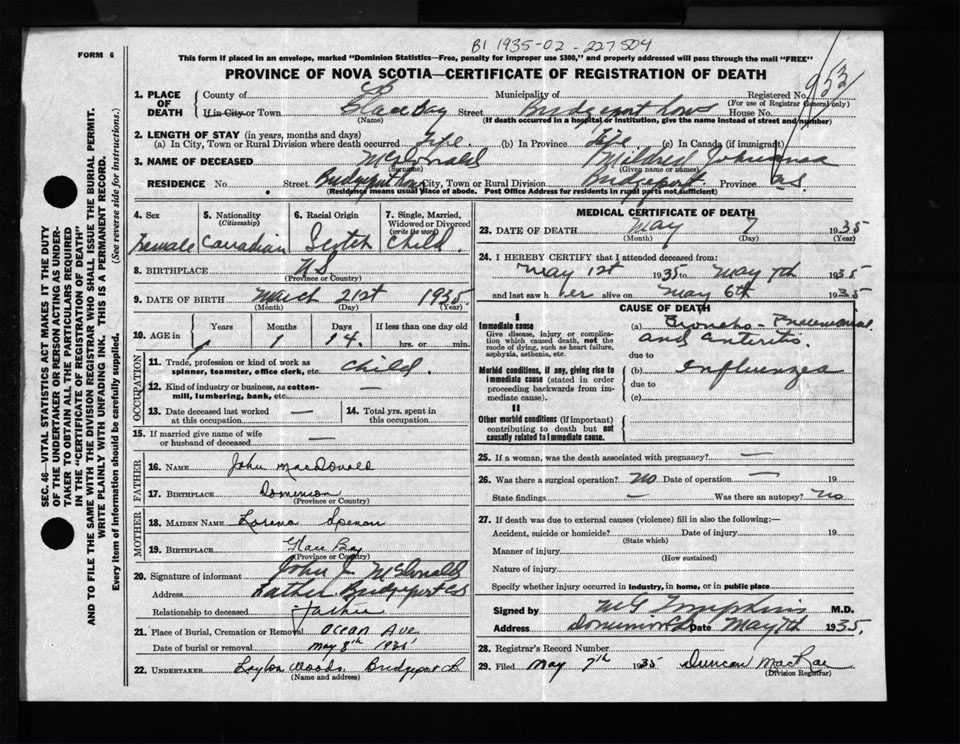 B1 1935-02-227504
FORM 6
This form if placed in an envelope, marked "Dominion Statistics—Free, penalty for improper use $300," and properly addressed will pass through the mail "FREE"
PROVINCE OF NOVA SCOTIA—CERTIFICATE OF REGISTRATION OF DEATH
SEC. 46—VITAL STATISTICS ACT MAKES IT THE DUTY
OF THE UNDERTAKER OR PERSON ACTING AS UNDER-
TAKER TO OBTAIN ALL THE PARTICULARS REQUIRED
IN THE "CERTIFICATE OF REGISTRATION OF DEATH"
AND TO FILE THE SAME WITH THE DIVISION REGISTRAR WHO SHALL ISSUE THE BURIAL PERMIT.
WRITE PLAINLY WITH UNFADING INK. THIS IS A PERMANENT RECORD.
Every item of information should be carefully supplied. (See reverse side for instructions.)
1. PLACE OF DEATH County of CB Municipality of Registered No. 953
(For use of Registrar General only)
If in City or Town Glace Bay Street Bridgeport House No.
(Name) (If death occurred in a hospital or institution, give the name instead of street and number)
2. LENGTH OF STAY (in years, months and days)
(a) In City, Town or Rural Division where death occurred Life (b) In Province Life (c) In Canada (if immigrant)
3. NAME OF DECEASED McDonald Mildred Johanna
(Surname) (Given name or names)
RESIDENCE No. Street Bridgeport City, Town or Rural Division Bridgeport Province N.S.
(Residence means usual place of abode. Post Office Address for residents in rural parts not sufficient)
4. Sex Female
5. Nationality (Citizenship) Canadian
6. Racial Origin Scotch
7. Single, Married, Widowed or Divorced (write the word) Child.
8. BIRTHPLACE N.S.
(Province or Country)
9. DATE OF BIRTH March 21st 1935
(Month) (Day) (Year)
10. AGE in Years Months 1 Days 14. If less than one day
hrs. or min.
OCCUPATION
11. Trade, profession or kind of work as spinner, teamster, office clerk, etc. Child.
12. Kind of industry or business, as cotton-mill, lumbering, bank, etc. —
13. Date deceased last worked at this occupation —
14. Total yrs. spent in this occupation
15. If married give name of wife or husband of deceased —
FATHER
16. NAME John MacDonald
17. BIRTHPLACE Dominion
(Province or Country)
MOTHER
18. MAIDEN NAME Lorena
19. BIRTHPLACE Glace Bay
(Province or Country)
20. Signature of informant John J McDonald
Address Bridgeport CB
Relationship to deceased Father
21. Place of Burial, Cremation or Removal Ocean Ave
Date of burial or removal May 8th 1935
22. UNDERTAKER Leyton Woods Bridgeport
(Name and address)
MEDICAL CERTIFICATE OF DEATH
23. DATE OF DEATH May 7 1935
(Month) (Day) (Year)
24. I HEREBY CERTIFY that I attended deceased from:
May 1st 1935 to May 7th 1935
and last saw her alive on May 6th 1935
CAUSE OF DEATH
I
Immediate cause
Give disease, injury or complication which caused death, not the mode of dying, such as heart failure, asphyxia, asthenia, etc.
(a) Broncho-Pneumonia
and enteritis.
due to
Morbid conditions, if any, giving rise to immediate cause (stated in order proceeding backwards from immediate cause).
(b) Influenza
due to
(c)
II
Other morbid conditions (if important) contributing to death but not causally related to immediate cause.
25. If a woman, was the death associated with pregnancy? —
26. Was there a surgical operation? No Date of operation — 19
State findings — Was there an autopsy? No
27. If death was due to external causes (violence) fill in also the following:—
Accident, suicide or homicide? Date of injury 19
(State which)
Manner of injury
(How sustained)
Nature of injury
Specify whether injury occurred in industry, in home, or in public place
Signed by M G Tompkins M.D.
Address Dominion Date May 7th 1935.
28. Registrar's Record Number
29. Filed May 7th 1935 Duncan MacRae
(Division Registrar)